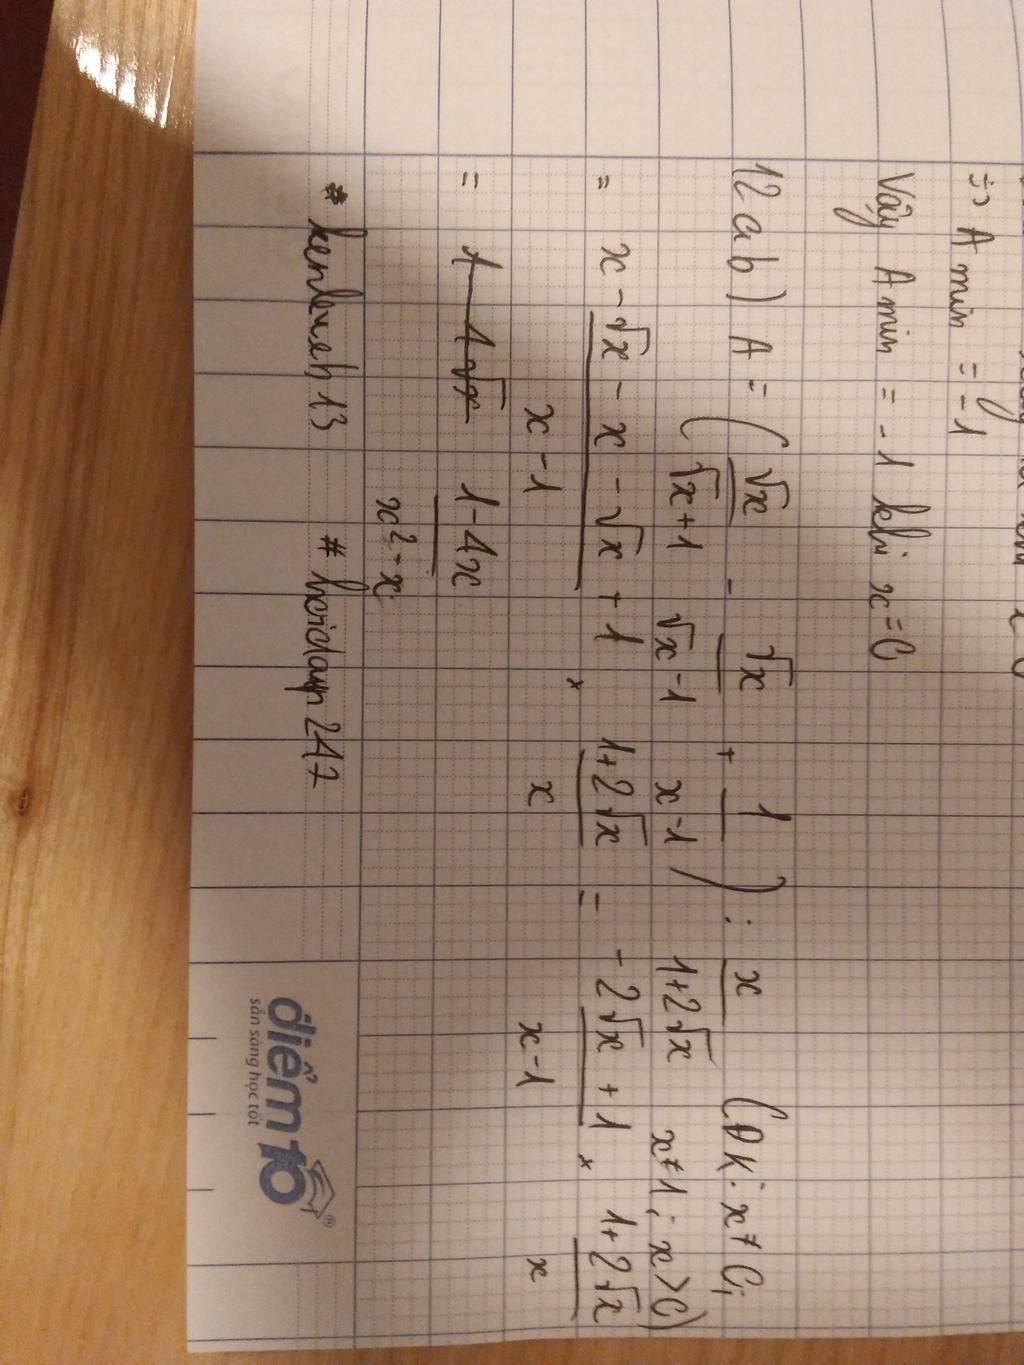 => A min = -1
Vậy A min = -1 khi x = 0
12 a b) A = ( √x/(√x+1) - √x/(√x-1) + 1/(x-1) ) : x/(1+2√x) (ĐK: x ≠ 0; x ≠ 1; x > 0)
= (x - √x - x - √x + 1)/(x-1) × (1+2√x)/x = (-2√x + 1)/(x-1) × (1+2√x)/x
= (1-4x)/(x²-x)
# kenlench13 # hoidap247
điểm 10 ®
sẵn sàng học tốt